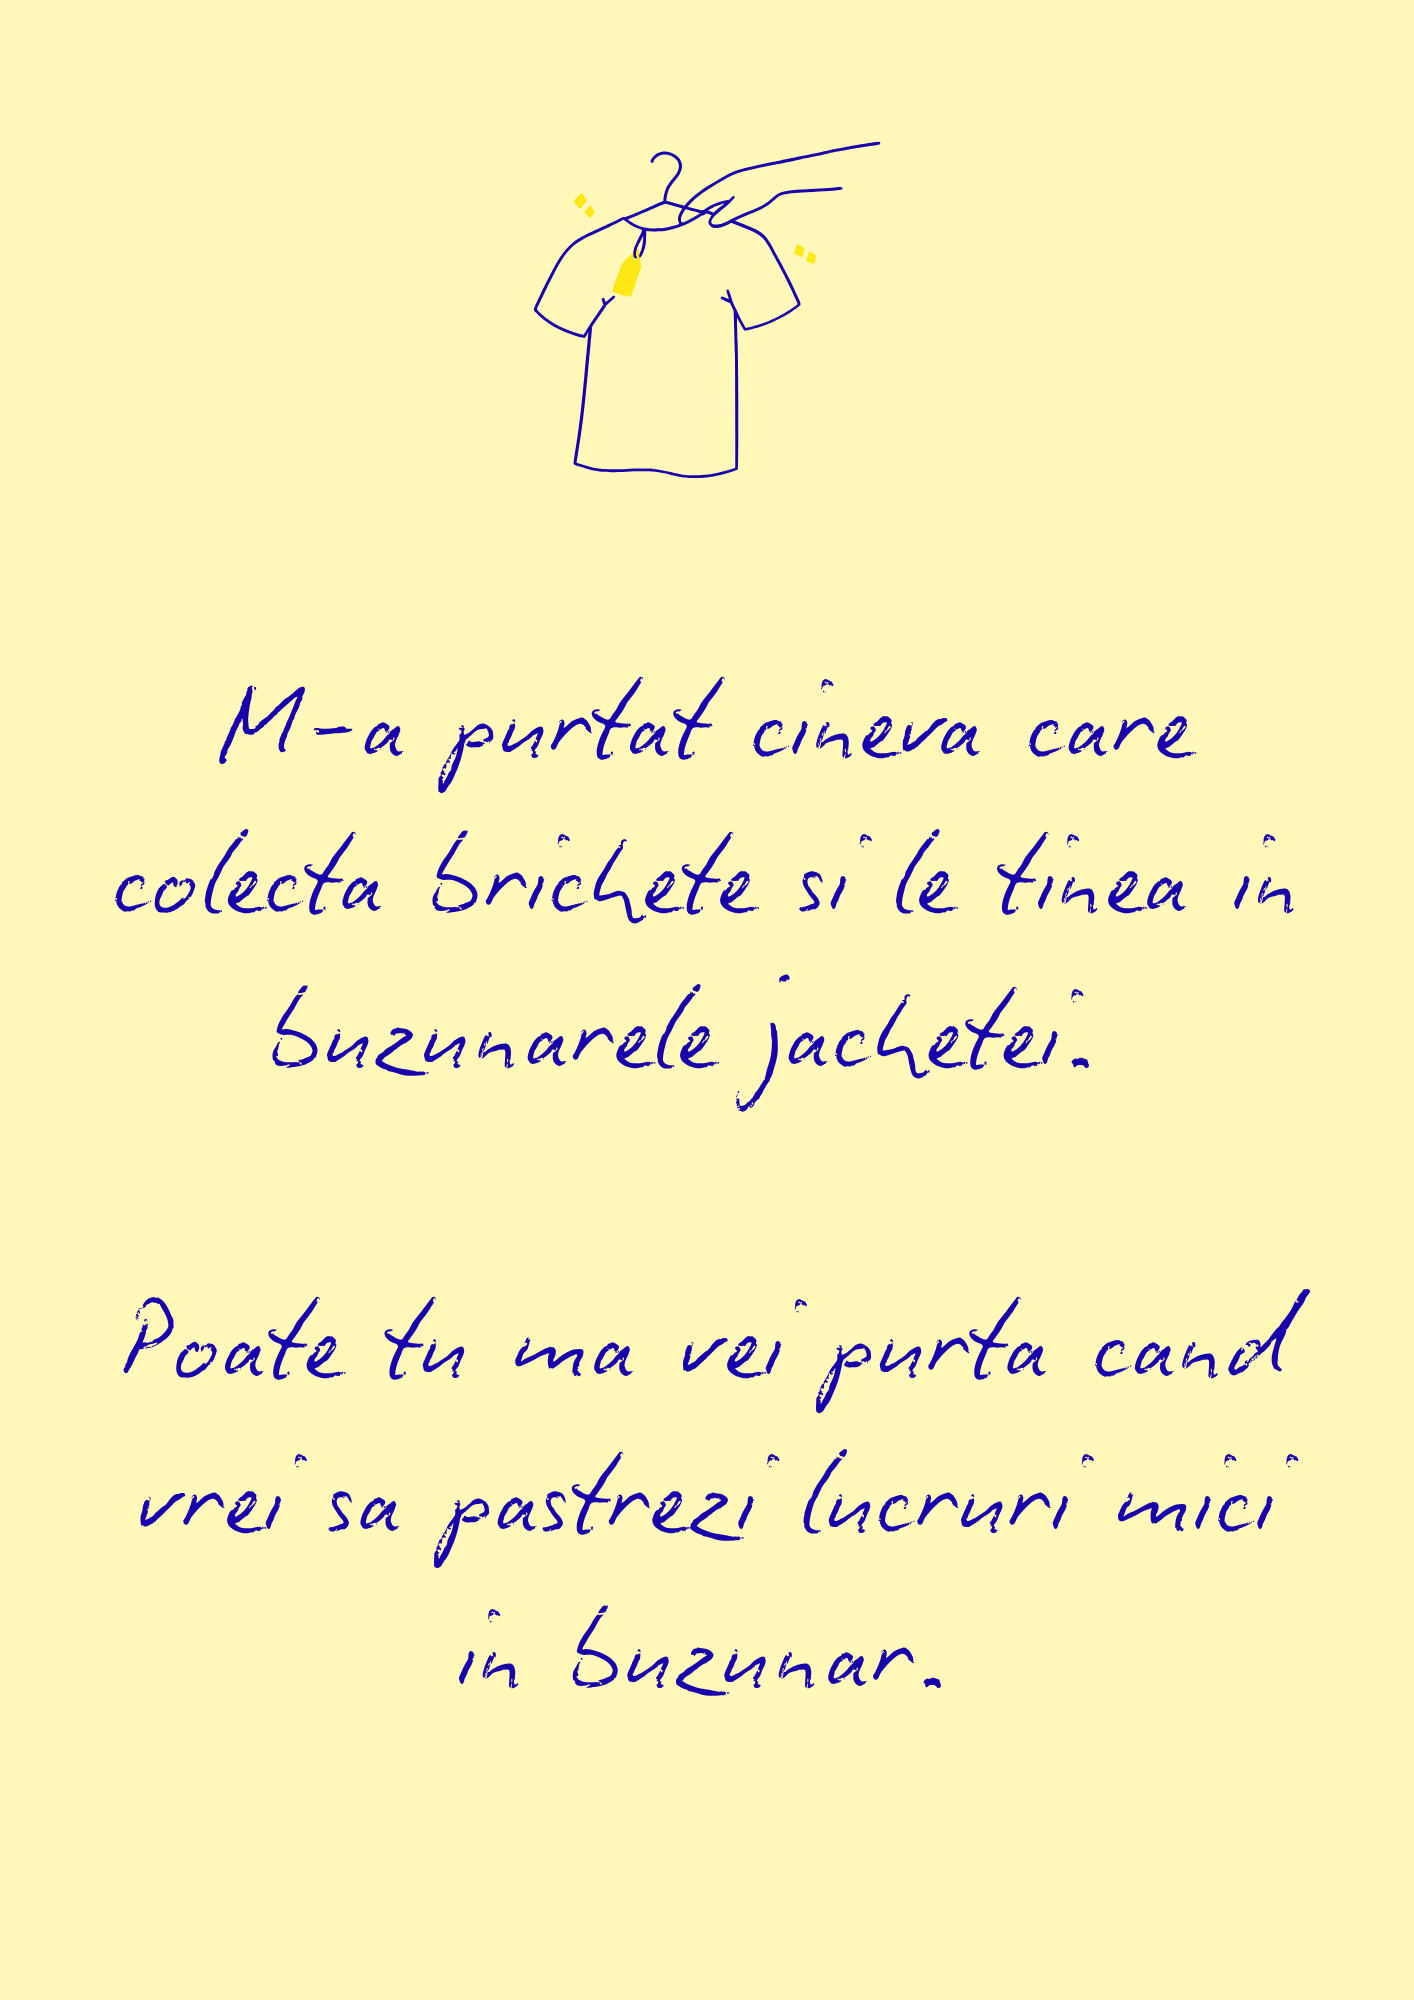 M-a purtat cineva care
colecta brichete si le tinea in
buzunarele jachetei.
Poate tu ma vei purta cand
vrei sa pastrezi lucruri mici
in buzunar.